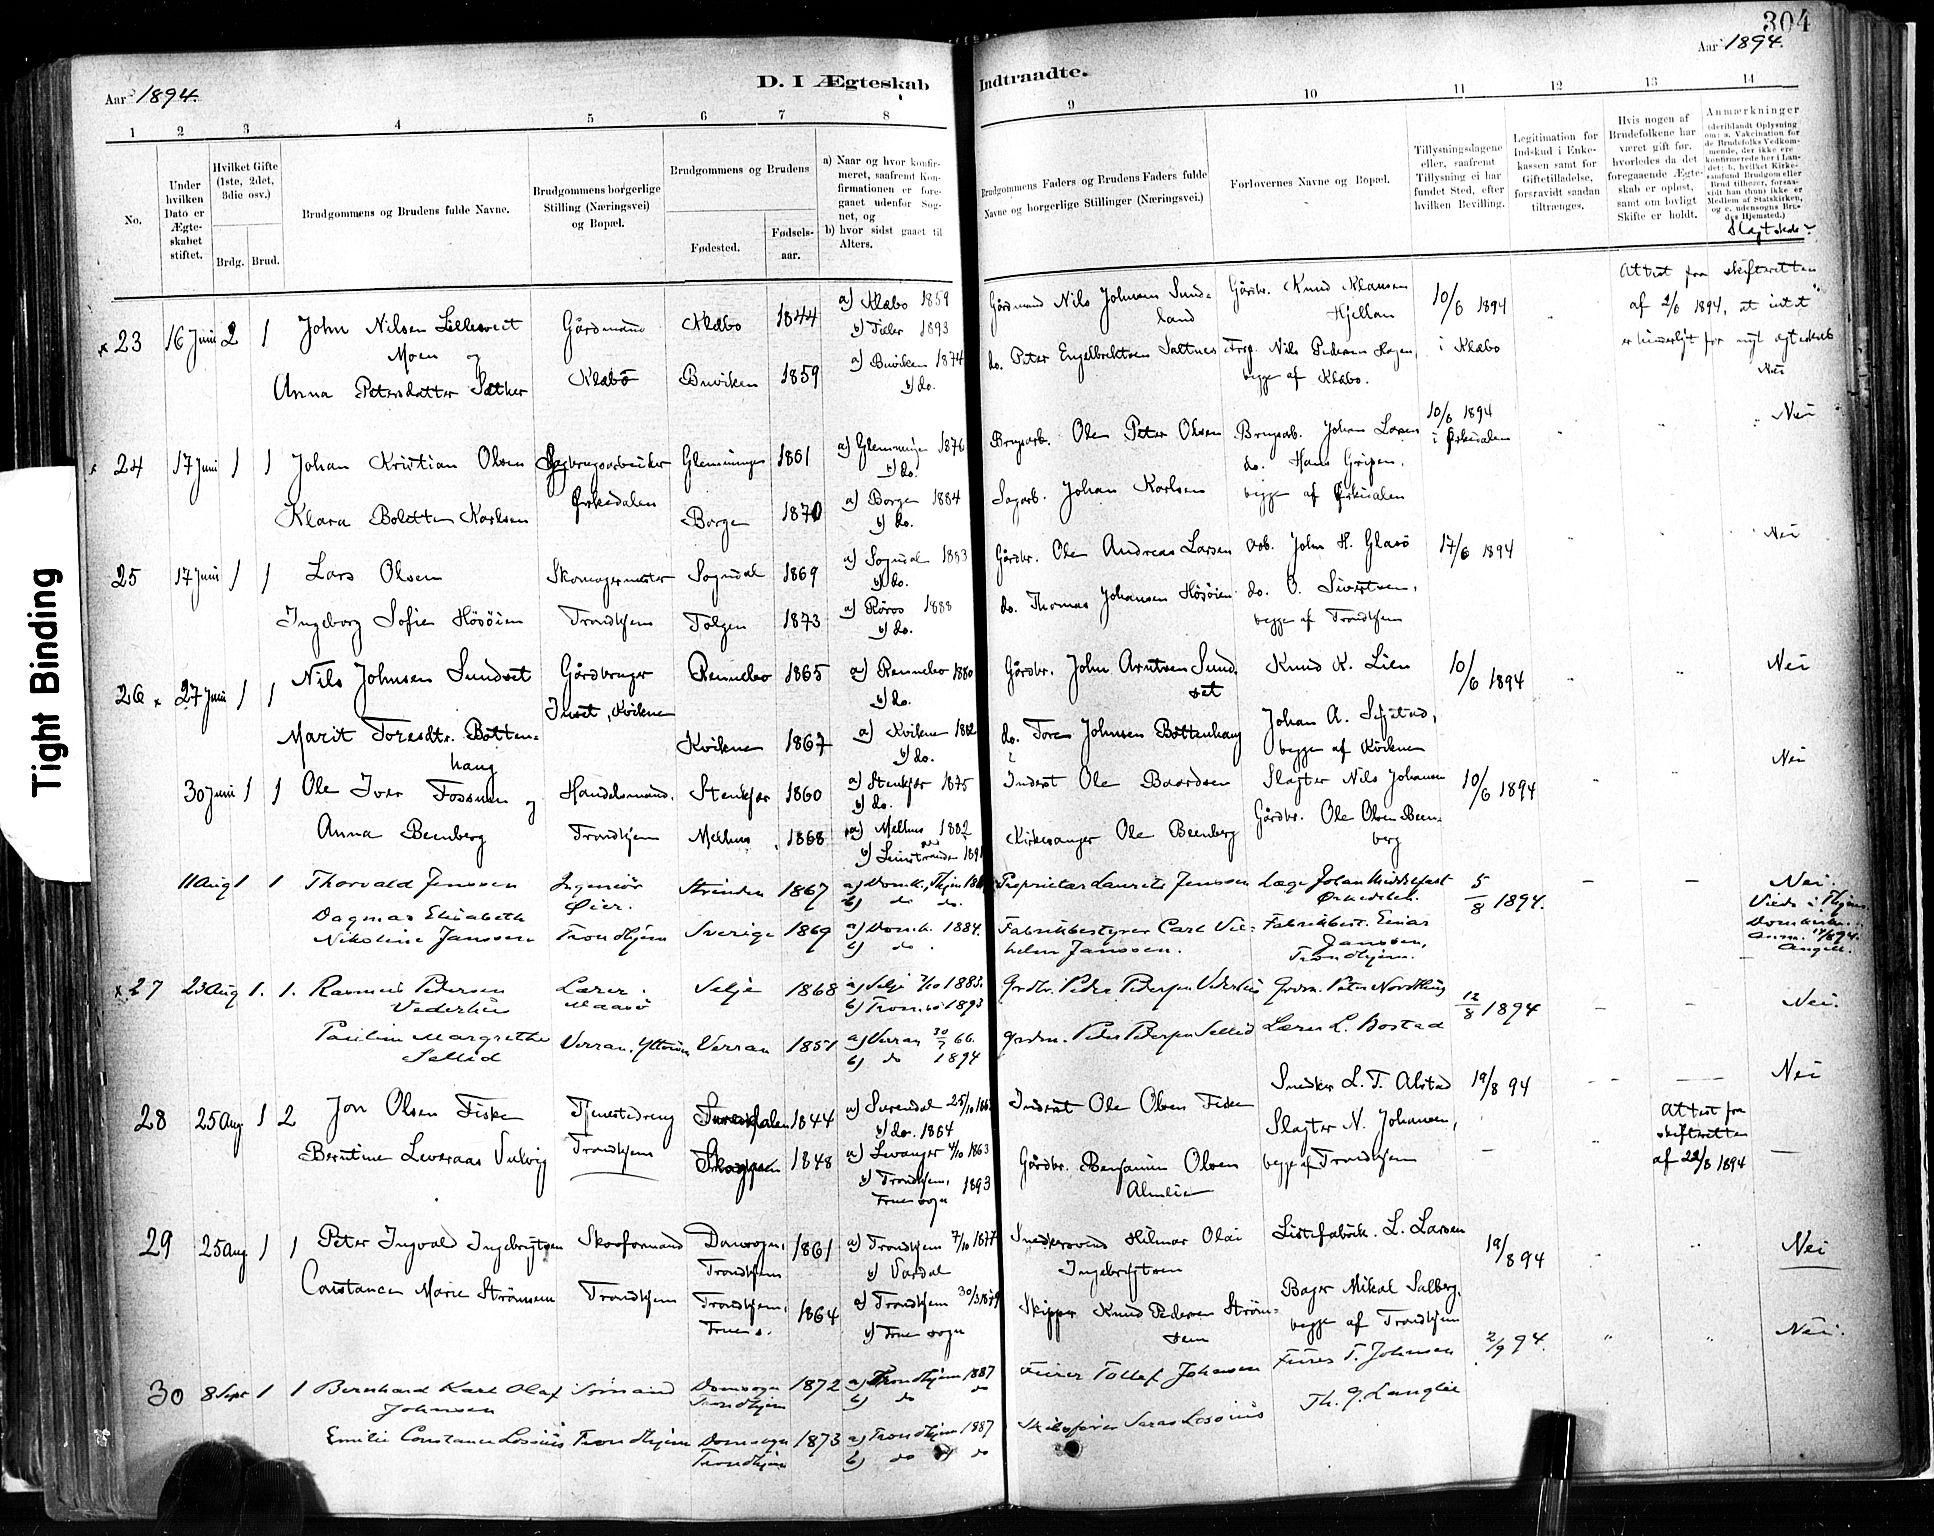 304
Aar 1894.
Aar 1894.
D. I Ægteskab Indtraadte.
1 2 3 4 5 6 7 8 9 10 11 12 13 14
No.
Under hvilken Dato er Ægteskabet stiftet.
Hvilket Gifte (1ste, 2det, 3die osv.)
Brdg. Brud.
Brudgommens og Brudens fulde Navne.
Brudgommens borgerlige Stilling (Næringsvei) og Bopæl.
Brudgommens og Brudens
Fødested.
Fødselsaar.
a) Naar og hvor konfirmeret, saafremt Konfirmationen er foregaaet udenfor Sognet, og
b) hvor sidst gaaet til Alters.
Brudgommens Faders og Brudens Faders fulde Navne og borgerlige Stillinger (Næringsvei.)
Forlovernes Navne og Bopæl.
Tillysningsdagene eller, saafremt Tillysning ei har fundet Sted, efter hvilken Bevilling.
Legitimation for Indskud i Enkekassen samt for Giftetilladelse, forsaavidt saadan tiltrænges.
Hvis nogen af Brudefolkene har været gift før, hvorledes da det foregaaende Ægteskab er opløst, samt om lovligt Skifte er holdt.
Anmærkninger
(deriblandt Oplysning om: a. Vakcination for de Brudefolks Vedkommende, der ikke ere konfirmerede her i Landet; b. hvilket Kirkesamfund Brudgom eller Brud tilhører, forsaavidt han (hun) ikke er Medlem af Statskirken, og c. udensogns Brudes Hjemsted.)
Slægtskab?
x 23 16 Juni 2 1 John Nilsen Lillesveet Moen og Gårdmand Klæbo Klæbo 1844 a) Klæbo 1859 b) Tiller 1893 Gårdmand Nils Johnsen Sundsand Gårdbr. Knud Klausen Hjellan 10/6 1894 i Klæbo Attest fra skifteretten af 2/6 1894, at intet er hinderligt for nyt ægteskab
Anna Petersdatter Sæther Buviken 1859 a) Buviken 1874 b) do. do. Peter Engelbrektsen Saltnes Forp. Nils Pedersen Hagen, begge af Klæbo. Nei
x 24 17 Juni 1 1 Johan Kristian Olsen Sagbrugsarbeider Ørkedalen Glemminge 1861 a) Glemminge 1876 b) do. Brugsarb. Ole Peter Olsen Brugsab. Johan Larsen do. Hans Gripen, begge af Ørkedalen 10/6 1894 i Ørkedalen Nei
Klara Bolette Karlsen Borge 1870 a) Borge 1884 b) do. Sagarb. Johan Karlsen
25 17 Juni 1 1 Lars Olsen Skomagermester Trondhjem Sogndal 1869 a) Sogndal 1883 b) do. Gårdbr. Ole Andreas Larsen Arb. John H. Glasø 17/6 1894 Nei
Ingeborg Sofie Hösöien Tolgen 1873 a) Röros 1888 b) do. do. Thomas Johansen Hösöien do. O. Sivertsen, begge af Trondhjem
26 x 27 Juni 1 1 Nils Johnsen Sundset Gårdbruger Inset, Kvikne Rennebo 1865 a) Rennebo 1880 b) do. Gårdbr. John Arntsen Sundset Knud K. Lien 10/6 1894 Nei
Marit Toresdtr. Böttenhaug Kvikne 1867 a) Kvikne 1882 b) do. do. Tore Johnsen Böttenhaug Johan A. begge af Kvikne
30 Juni 1 1 Ole Iver Fossum og Handelsmand, Trondhjem Stenkjær 1860 a) Stenkjær 1875 b) do. Inderst Ole Baardsen Slagter Nils Johansen 10/6 1894 Nei
Anna Beenberg Melhus 1868 a) Melhus 1882 b) Leinstranden 1891 Kirkesanger Ole Beenberg Gårdbr. Ole Olsen Beenberg
11 Aug 1 1 Thorvald Jenssen Ingeniør Øier. Strinden 1867 a) Domk., Thjem b) do do. Proprietær Laurits Jenssen Læge Johan Middelfart 5/8 1894. Nei. Viede i Thjems Domkirke. Anm. 17/8 94.
Dagmar Elisabeth Nikoline Janssen Trondhjem Sverige 1869 a) Domk. 1884. b) do. Fabrikbestyrer Carl Vilhelm Janssen. Fabrikbest. Einar Janssen, Trondhjem.
x 27 23 Aug 1. 1. Rasmus Pedersen Lærer. Maasö Selje 1868 a) Selje 7/10 1883. b) Tromsö 1893 Grdbr. Peder Pedersen Grdm. Peter Nordthug 12/8 1894 Nei.
Pauline Margrethe Sellid Verran. Verran 1851 a) Verran 30/7 66. b) do 1894 Grdm. Peder Pedersen Sellid Lærer L. Bostad
28 25 Aug 1 2 Jon Olsen Fiske Tjenestedreng Trondhjem Surendalen 1844 a) Surendal b) do. 1864 Inderst Ole Olsen Fiske Snedker L. T. Alstad 19/8 94 Nei
Berntine Leveraas Vulvig Skogn 1848 a) Levanger 4/10 1863 b) Trondhjem, Frue sogn 1893 Gårdbr. Benjamin Olsen Almlie Slagter N. Johansen, begge af Trondhjem Attest fra skifteretten af 22/8 1894
29 25 Aug 1 1 Peter Ingvald Ingebrigtsen Skoformand Trondhjem Domsogn, Trondhjem 1861 a) Trondhjem 7/10 1877 b) Værdal Snedkersvend Hilmar Olai Ingebrigtsen Listefabrik. L. Larsen 19/8 94 Nei
Constance Marie Strömsem Trondhjem, Frue s. 1864 a) Trondhjem 30/3 1879 b) Frue sogn Skipper Knud Pedersen Strömsem Bager Mikal Salberg, begge af Trondhjem
30 8 Sept 1 1 Bernhard Karl Olaf Johnsen Sømand Domsogn Trondhjem 1872 a) Trondhjem 1887 b) do do Fürer Tollef Johnsen Fürer T. Johnsen 2/9 94. Nei.
Emilie Constance Losiius Trondhjem Domsogn Trondhjem 1873 a) Trondhjem 1887 b) do do Th. J. Langlie
Tight Binding